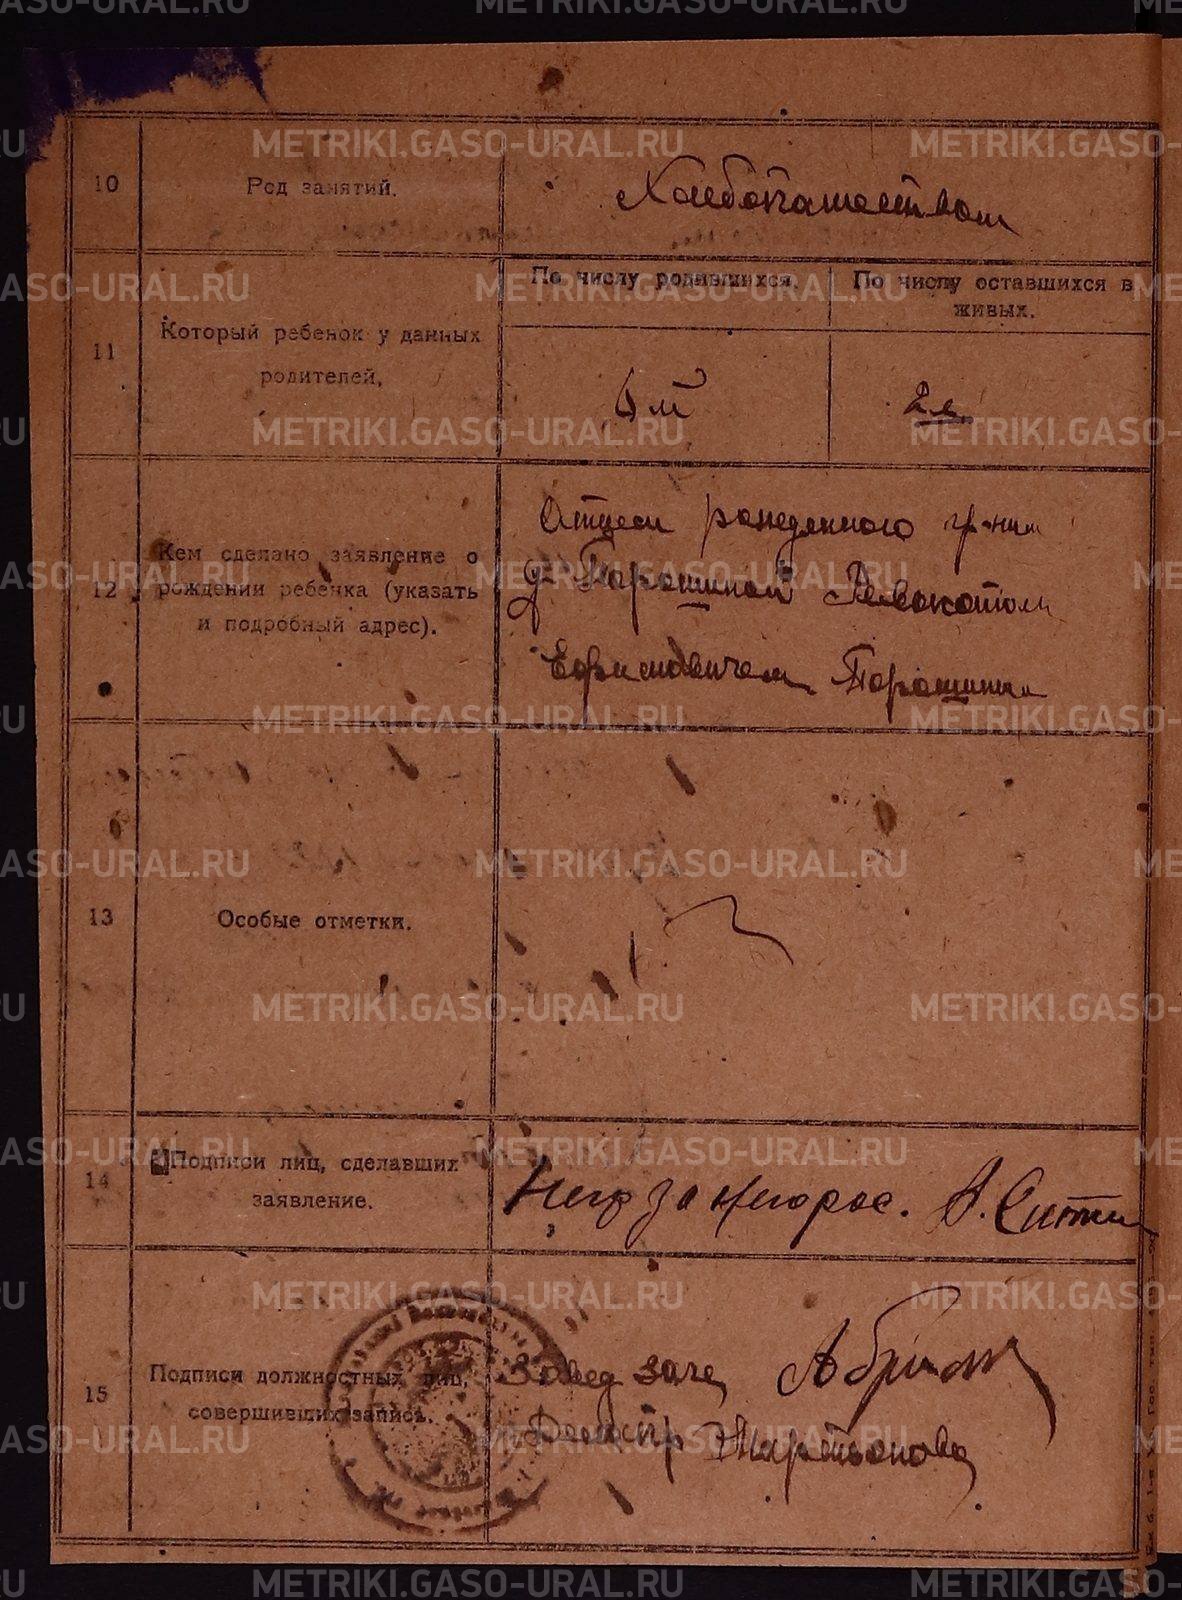 METRIKI.GASO-URAL.RU
10
Род занятий.
Хлебопашеством
11
Который ребенок у данных
родителей.
По числу родившихся.
По числу оставшихся в
живых.
2й
12
Кем сделано заявление о
рождении ребенка (указать
и подробный адрес).
Отцем рожденного гр-ном
д. Порошиной
Ефимовичем Порошиным
13
Особые отметки.
14
Подписи лиц, сделавших
заявление.
Негр за негорос.
15
Подписи должностных лиц,
совершивших запись.
Завед загс
Мартьянова